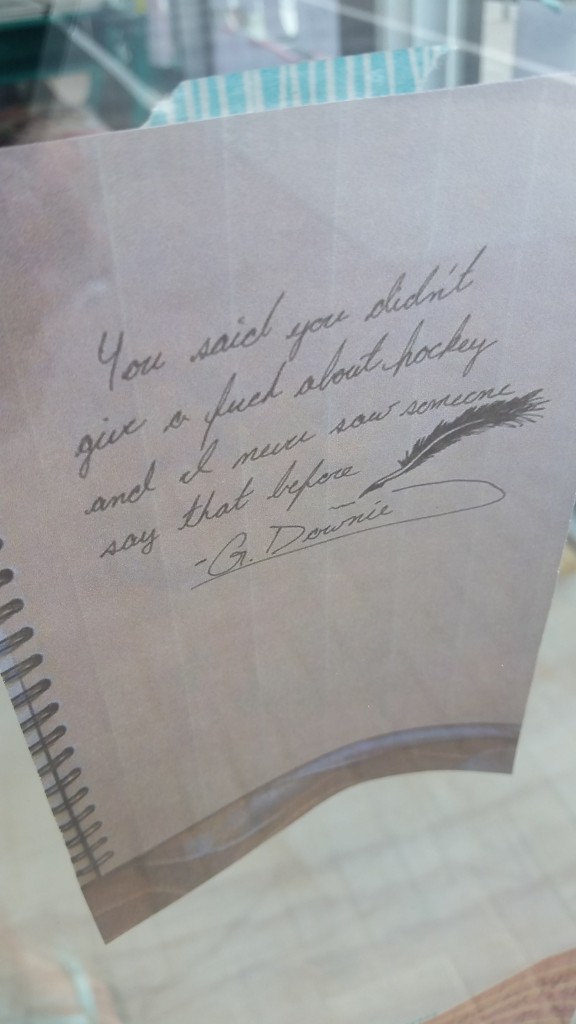 You said you didn't
give a fuck about hockey
and I never saw someone
say that before
-G. Downie